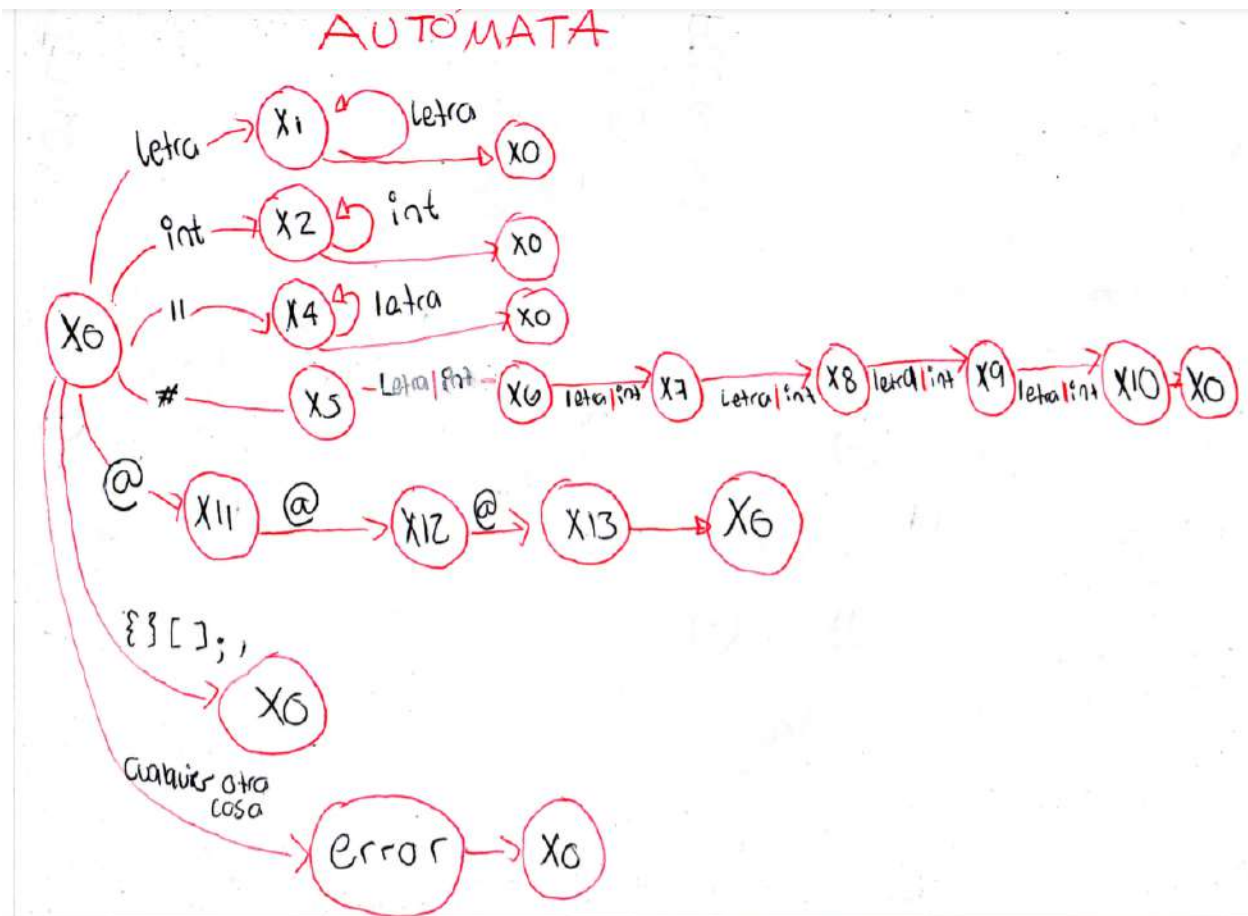 AUTÓMATA
letra
X1
letra
X0
int
X2
int
X0
X0
11
X4
latra
X0
#
X5
Letra|int
X6
letra|int
X7
Letra|int
X8
letra|int
X9
letra|int
X10
X0
@
X11
@
X12
@
X13
X0
{}[];,
X0
Cualquier otra
cosa
error
X0